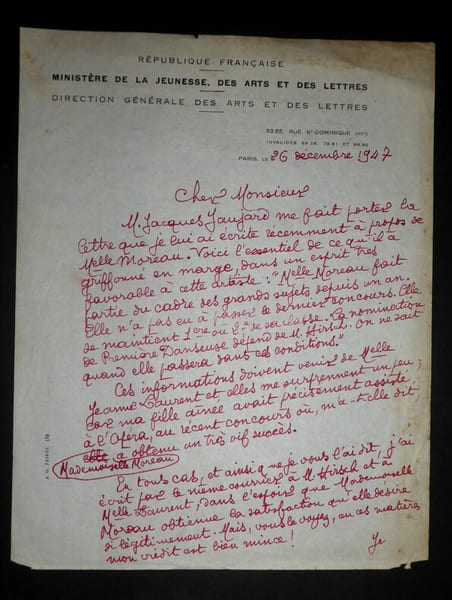 RÉPUBLIQUE FRANÇAISE
MINISTÈRE DE LA JEUNESSE, DES ARTS ET DES LETTRES
DIRECTION GÉNÉRALE DES ARTS ET DES LETTRES
53.55 RUE St-DOMINIQUE (VIIe)
INVALIDES
PARIS, LE 26 décembre 1947
Cher Monsieur
M. Jacques Jaujard me fait porter la
lettre que je lui ai écrite récemment à propos de
Melle Moreau. Voici l'essentiel de ce qu'il a
griffonné en marge, dans un esprit très
favorable à cette artiste : "Melle Moreau fait
partie du cadre des grands sujets depuis un an.
Elle n'a pas eu à passer le dernier concours. Elle
se maintient 1ère ou 2e de sa classe. La nomination
de Première Danseuse dépend de M. Hirsch. On ne sait
quand elle passera dans ces conditions."
Ces informations doivent venir de Melle
Jeanne Laurent et elles me surprennent un peu ;
car ma fille aînée avait précisément assisté,
à l'Opéra, au récent concours où, m'a-t-elle dit,
elle a obtenu un très vif succès.
Mademoiselle Moreau
En tous cas, et ainsi que je vous l'ai dit, j'ai
écrit par le même courrier à M. Hirsch et à
Melle Laurent, dans l'espoir que Mademoiselle
Moreau obtienne la satisfaction qu'elle désire
si légitimement. Mais, vous le voyez, en ces matières
mon crédit est bien mince !
Je